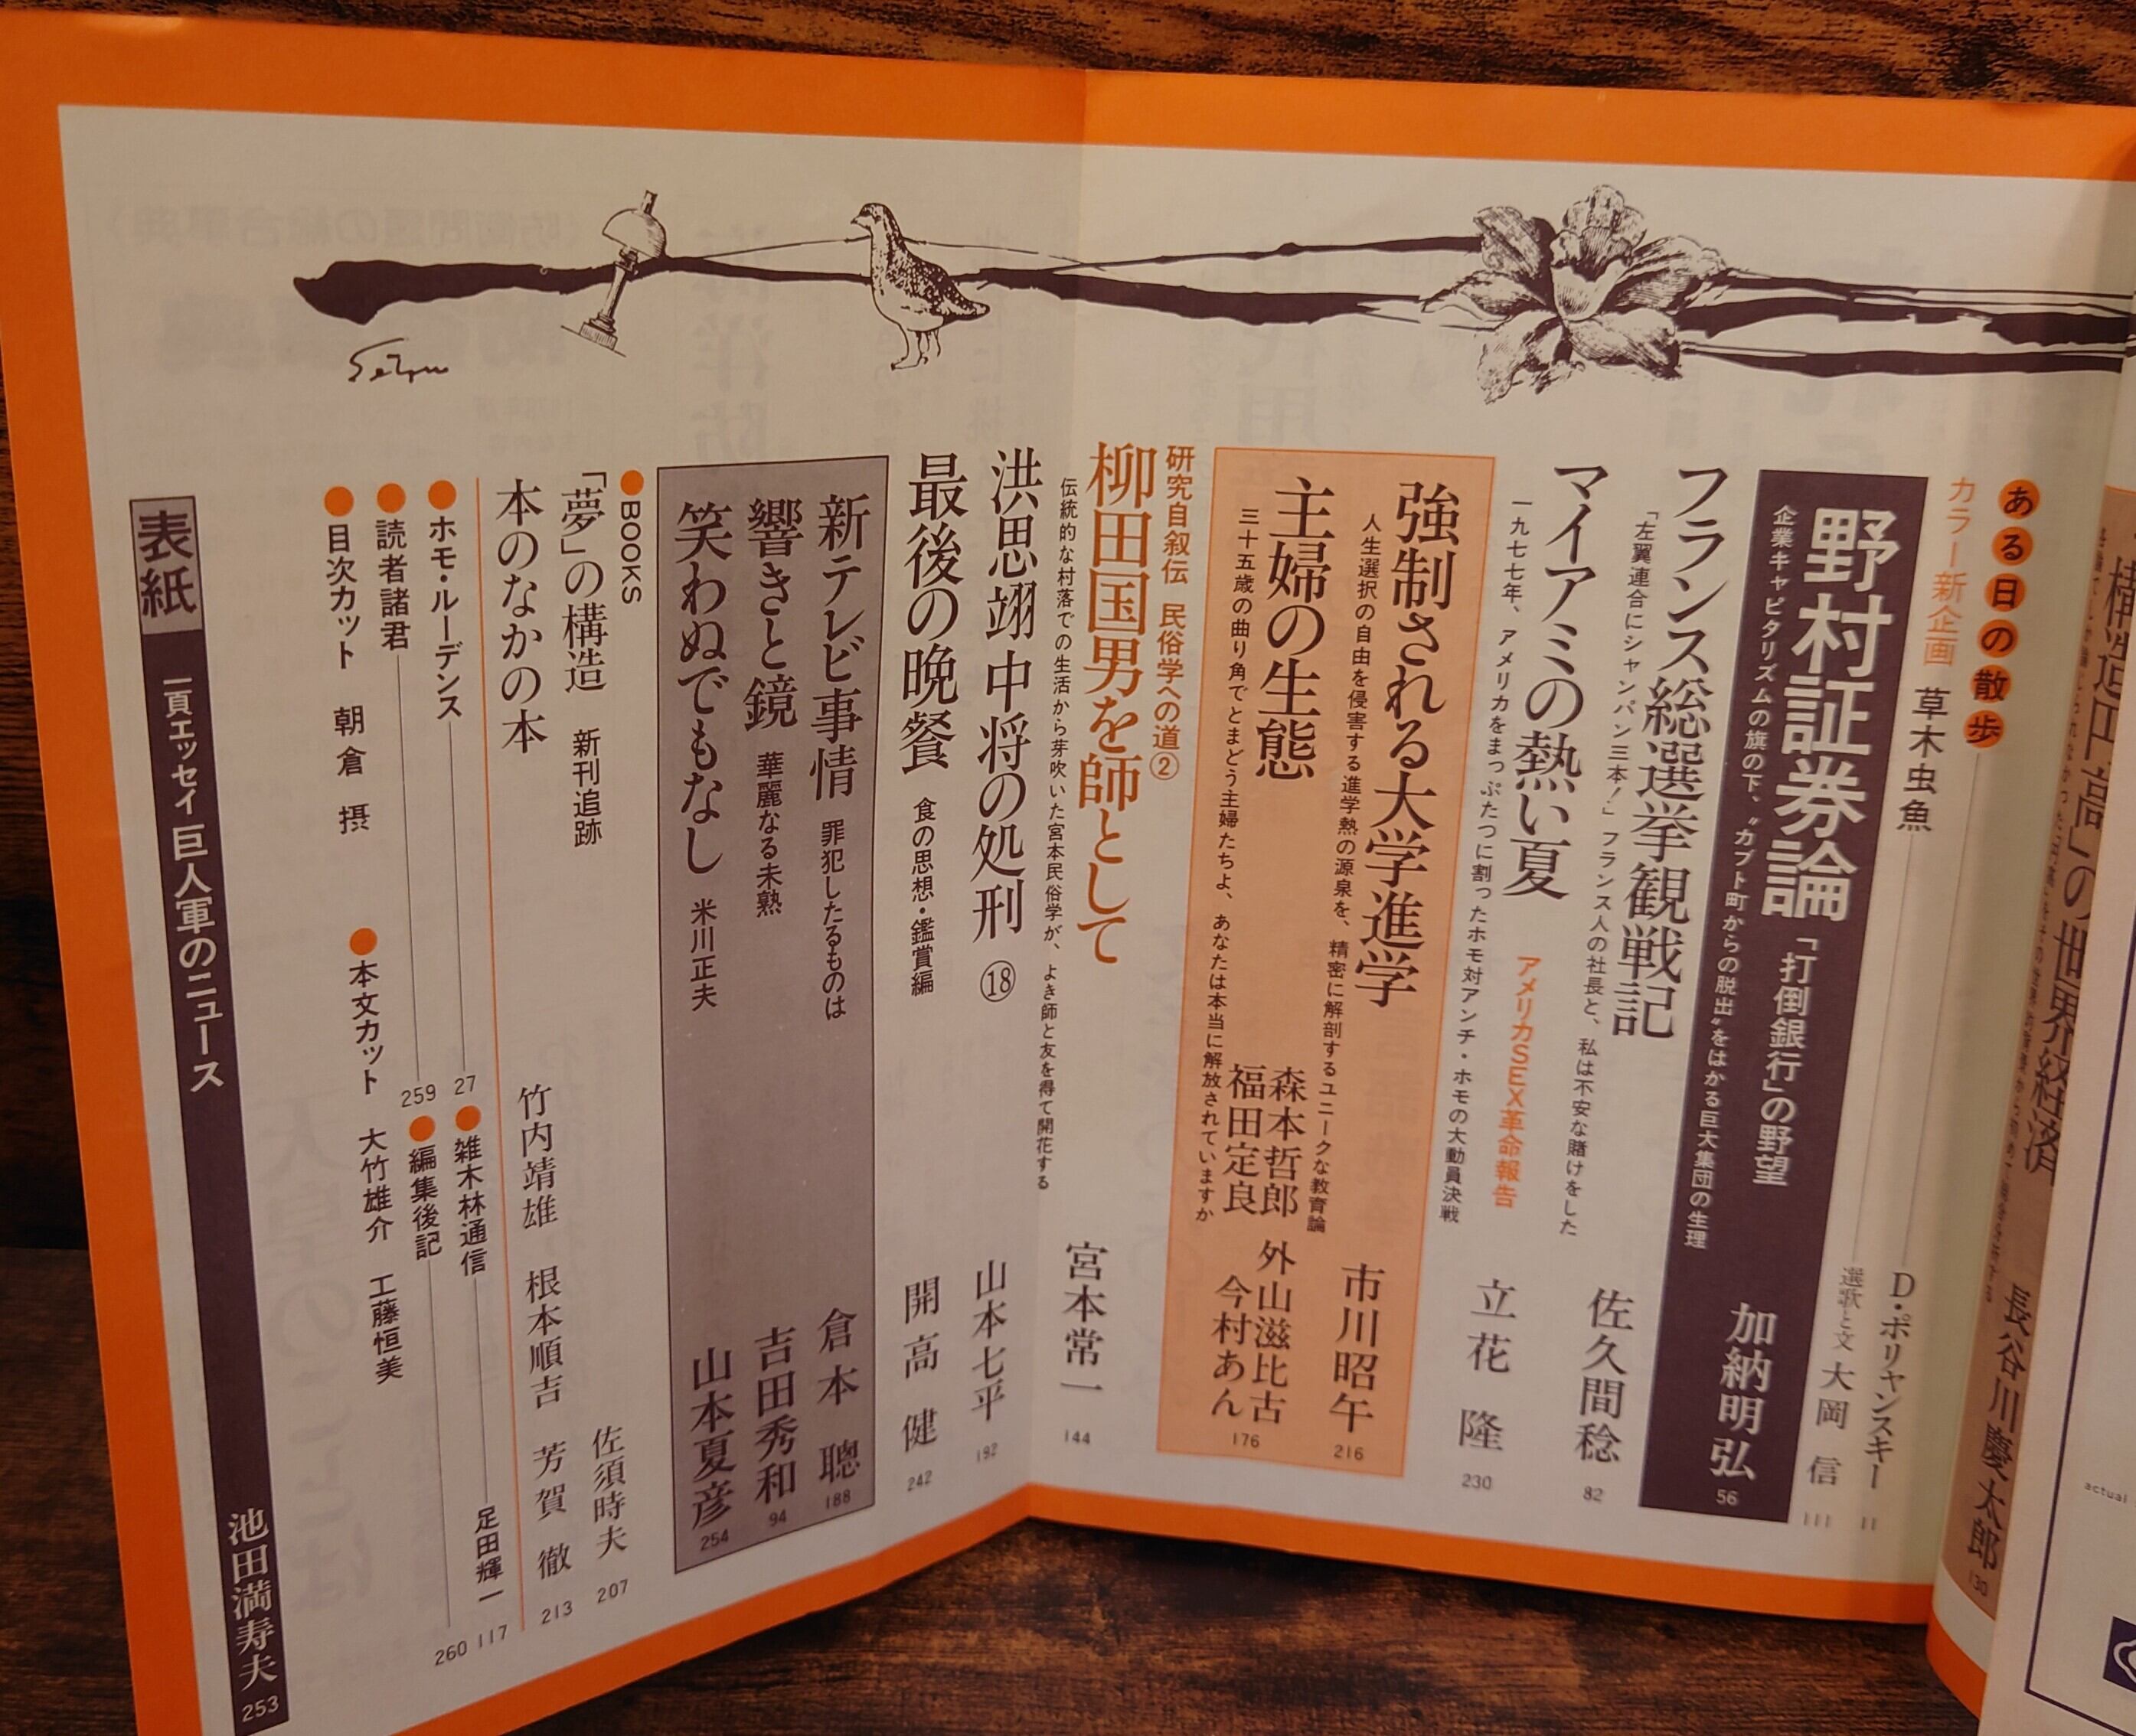 長谷川慶太郎
130
ある日の散歩
D・ポリャンスキー
11
カラー新企画 草木虫魚
選歌と文 大岡 信
111
野村証券論 「打倒銀行」の野望
企業キャピタリズムの旗の下、〝カブト町からの脱出〟をはかる巨大集団の生理
加納明弘
56
フランス総選挙観戦記
「左翼連合にシャンパン三本!」フランス人の社長と、私は不安な賭けをした
佐久間稔
82
マイアミの熱い夏 アメリカSEX革命報告
一九七七年、アメリカをまっぷたつに割ったホモ対アンチ・ホモの大動員決戦
立花 隆
230
強制される大学進学
人生選択の自由を侵害する進学熱の源泉を、精密に解剖するユニークな教育論
市川昭午
216
主婦の生態
三十五歳の曲り角でとまどう主婦たちよ、あなたは本当に解放されていますか
森本哲郎 外山滋比古
福田定良 今村あん
176
研究自叙伝 民俗学への道②
柳田国男を師として
伝統的な村落での生活から芽吹いた宮本民俗学が、よき師と友を得て開花する
宮本常一
144
洪思翊中将の処刑 ⑱
山本七平
192
最後の晩餐 食の思想・鑑賞編
開高 健
242
新テレビ事情 罪犯したるものは
倉本 聰
188
響きと鏡 華麗なる未熟
吉田秀和
94
笑わぬでもなし 米川正夫
山本夏彦
254
●BOOKS
「夢」の構造 新刊追跡
佐須時夫
207
本のなかの本
竹内靖雄 根本順吉 芳賀 徹
213
●ホモ・ルーデンス
27
●雑木林通信
足田輝一
117
●読者諸君
259
●編集後記
260
●目次カット 朝倉 摂
●本文カット 大竹雄介 工藤恒美
表紙
一頁エッセイ 巨人軍のニュース
池田満寿夫
253
actual